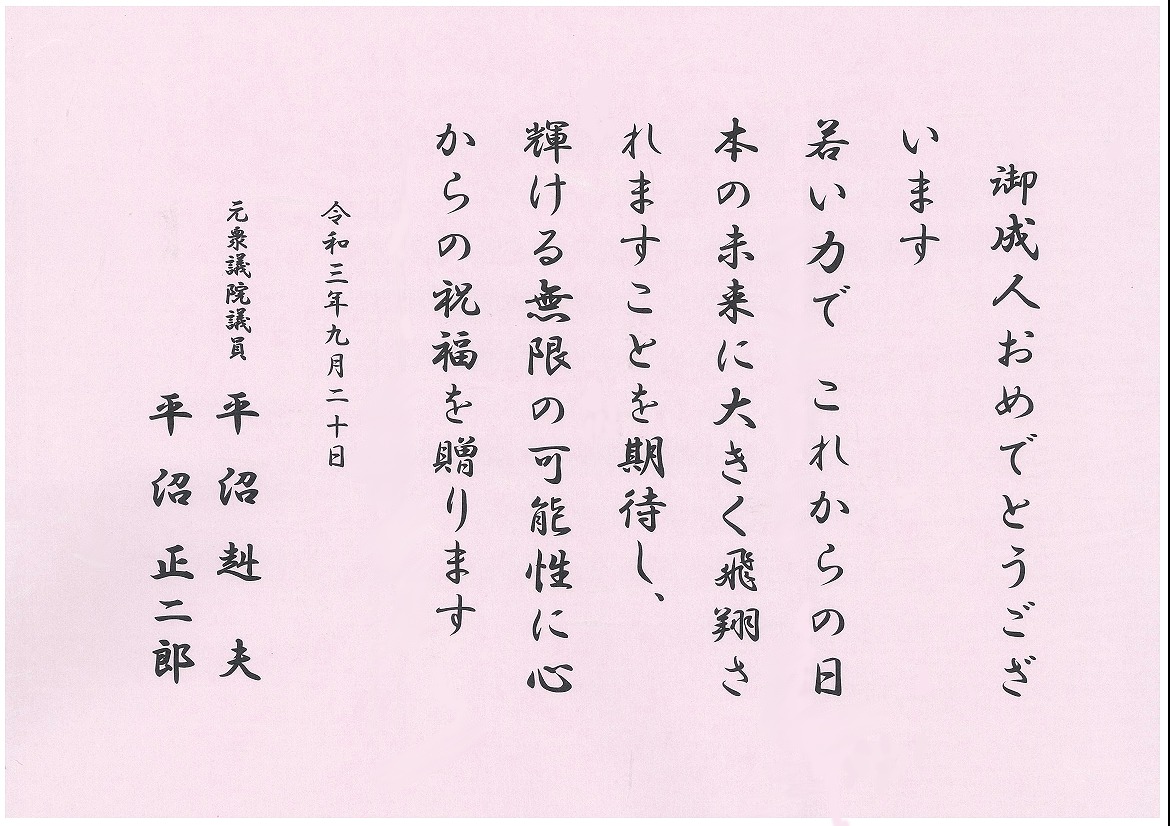 御成人おめでとうござ
います
若い力で　これからの日
本の未来に大きく飛翔さ
れますことを期待し、
輝ける無限の可能性に心
からの祝福を贈ります
令和三年九月二十日
元衆議院議員　平沼赳夫
平沼正二郎